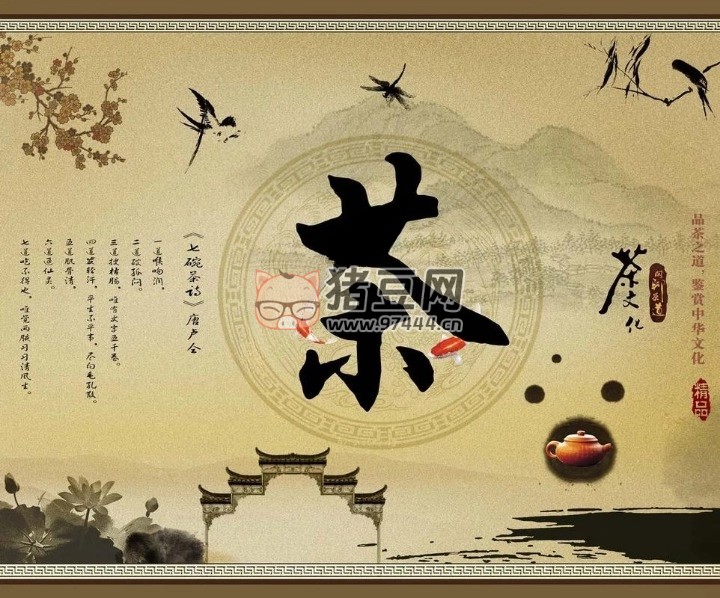 品茶之道,鉴赏中华文化
精品
茶文化
茶
猪豆网
www.97444.cn
《七碗茶诗》唐卢仝
一道喉吻润,
二道破孤闷。
三道搜枯肠,唯有文字五千卷。
四道发轻汗,平生不平事,尽向毛孔散。
五道肌骨清,
六道通仙灵。
七道吃不得也,唯觉两腋习习清风生。